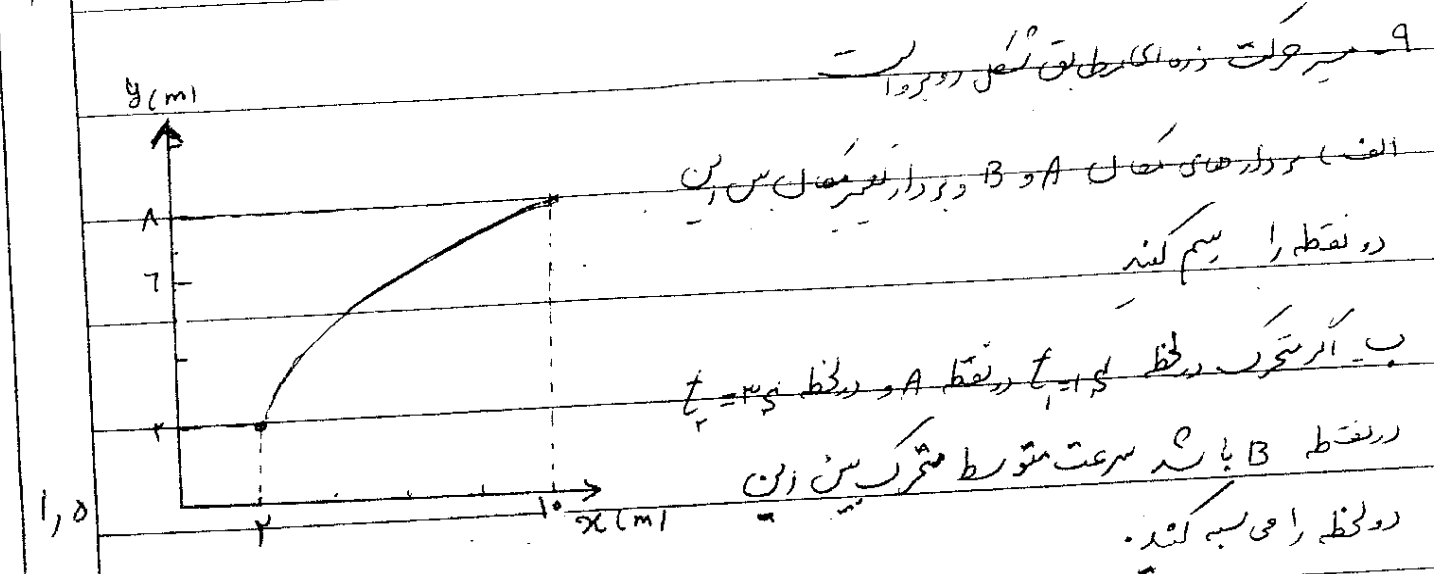 ۹- مسیر حرکت ذره ای مطابق شکل روبرو است
الف) بردارهای مکان A و B و بردار تغییر مکان بین این
دو نقطه را رسم کنید
ب- اگر متحرک در لحظه t₁=۱s در نقطه A و در لحظه t₂=۳s
در نقطه B باشد سرعت متوسط متحرک بین این
دو لحظه را محاسبه کنید.
۱,۵
y(m)
۸
۶
۲
۲
۱۰
x(m)